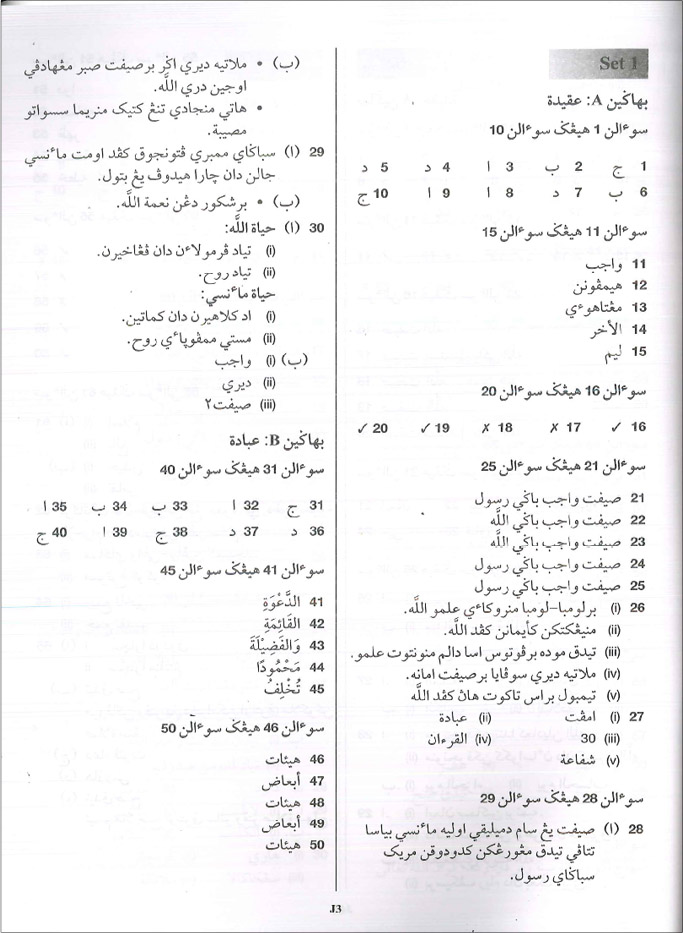 Set 1
بهاڬين A: عقيدة
سوءالن 1 هيڠݢ سوءالن 10
1 ج 2 ب 3 ا 4 د 5 د
6 ب 7 د 8 ا 9 ا 10 ج
سوءالن 11 هيڠݢ سوءالن 15
11 واجب
12 هيمڤونن
13 مڠتاهوءي
14 الأخر
15 ليم
سوءالن 16 هيڠݢ سوءالن 20
16 ✓ 17 ✗ 18 ✗ 19 ✓ 20 ✓
سوءالن 21 هيڠݢ سوءالن 25
21 صيفت واجب باݢي رسول
22 صيفت واجب باݢي الله
23 صيفت واجب باݢي الله
24 صيفت واجب باݢي رسول
25 صيفت واجب باݢي رسول
26 (i) برلومبا-لومبا منروكاءي علمو الله.
(ii) منيڠكتكن كأيمانن كڤد الله.
(iii) تيدق موده برڤوتوس اسا دالم منونتوت علمو.
(iv) ملاتيه ديري سوڤايا برصيفت امانه.
(v) تيمبول براس تاكوت هاڽ كڤد الله
27 (i) امڤت (ii) عبادة
(iii) 30 (iv) القرءان
(v) شفاعة
سوءالن 28 هيڠݢ سوءالن 29
28 (ا) صيفت يڠ سام دميليقي اوليه ماءنسي بياسا
تتاڤي تيدق مڠورڠكن كدودوقن مريک
سباݢاي رسول.
(ب) • ملاتيه ديري اݢر برصيفت صبر مڠهادڤي
اوجين دري الله.
• هاتي منجادي تنڠ كتيک منريما سسواتو
مصيبة.
29 (ا) سباݢاي ممبري ڤتونجوق كڤد اومت ماءنسي
جالن دان چارا هيدوڤ يڠ بتول.
(ب) • برشكور دڠن نعمة الله.
30 (ا) حياة الله:
(i) تياد ڤرمولاءن دان ڤڠاخيرن.
(ii) تياد روح.
حياة ماءنسي:
(i) اد كلاهيرن دان كماتين.
(ii) مستي ممڤوڽاءي روح.
(ب) (i) واجب
(ii) ديري
(iii) صيفت٢
بهاڬين B: عبادة
سوءالن 31 هيڠݢ سوءالن 40
31 ج 32 ا 33 ب 34 ب 35 ا
36 د 37 د 38 ج 39 ا 40 ج
سوءالن 41 هيڠݢ سوءالن 45
41 الدَّعْوَةِ
42 القَائِمَةِ
43 وَالفَضِيْلَةَ
44 مَحْمُودًا
45 تُخْلِفُ
سوءالن 46 هيڠݢ سوءالن 50
46 هيئات
47 أبعاض
48 هيئات
49 أبعاض
50 هيئات
J3